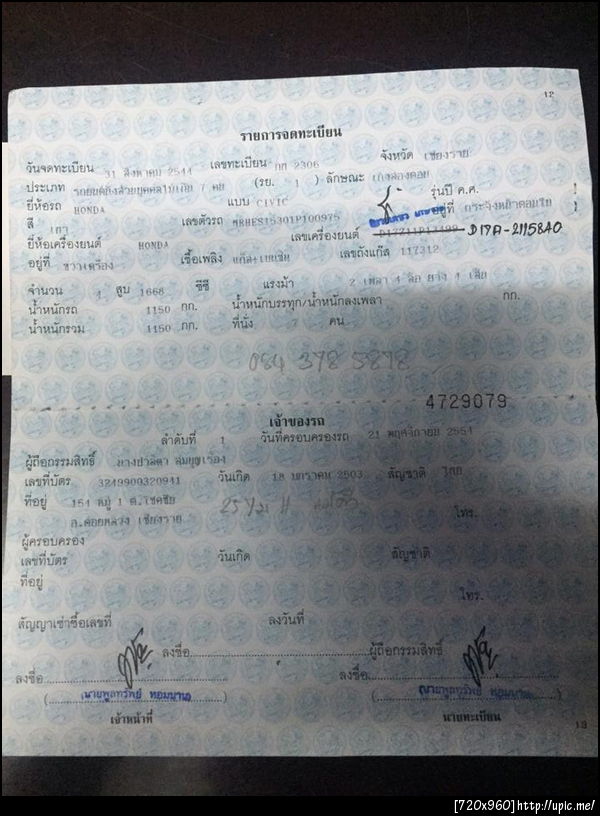 12
รายการจดทะเบียน
วันจดทะเบียน 31 สิงหาคม 2544 เลขทะเบียน กก 2306 จังหวัด เชียงราย
ประเภท รถยนต์นั่งส่วนบุคคลไม่เกิน 7 คน (รย. 1 ) ลักษณะ เก๋งสองตอน
ยี่ห้อรถ HONDA แบบ CIVIC รุ่นปี ค.ศ.
สี เทา เลขตัวรถ MRHES15301P100975 อยู่ที่
ยี่ห้อเครื่องยนต์ HONDA เลขเครื่องยนต์ D17A-2115840
อยู่ที่ ขวาเครื่อง เชื้อเพลิง แก๊ส+เบนซิน เลขถังแก๊ส 117312
จำนวน 4 สูบ 1668 ซีซี แรงม้า 2 เพลา 4 ล้อ ยาง 4 เส้น
น้ำหนักรถ 1150 กก. น้ำหนักบรรทุก/น้ำหนักลงเพลา กก.
น้ำหนักรวม 1150 กก. ที่นั่ง 7 คน
084 378 5878
4729079
เจ้าของรถ
ลำดับที่ 1 วันที่ครอบครองรถ 21 พฤศจิกายน 2551
ผู้ถือกรรมสิทธิ์ นางปาลิตา
เลขที่บัตร 3249900320941 วันเกิด 18 มกราคม 2503 สัญชาติ ไทย
ที่อยู่ 154 หมู่ 1 ต.โชคชัย โทร.
อ.ดอยหลวง เชียงราย
ผู้ครอบครอง
เลขที่บัตร วันเกิด สัญชาติ
ที่อยู่
โทร.
สัญญาเช่าซื้อเลขที่ ลงวันที่
ลงชื่อ ผู้ถือกรรมสิทธิ์
ลงชื่อ ลงชื่อ
(นายพูลทรัพย์ หอมนาน) (นายพูลทรัพย์ หอมนาน)
เจ้าหน้าที่ นายทะเบียน
13
[720x960]http://upic.me/